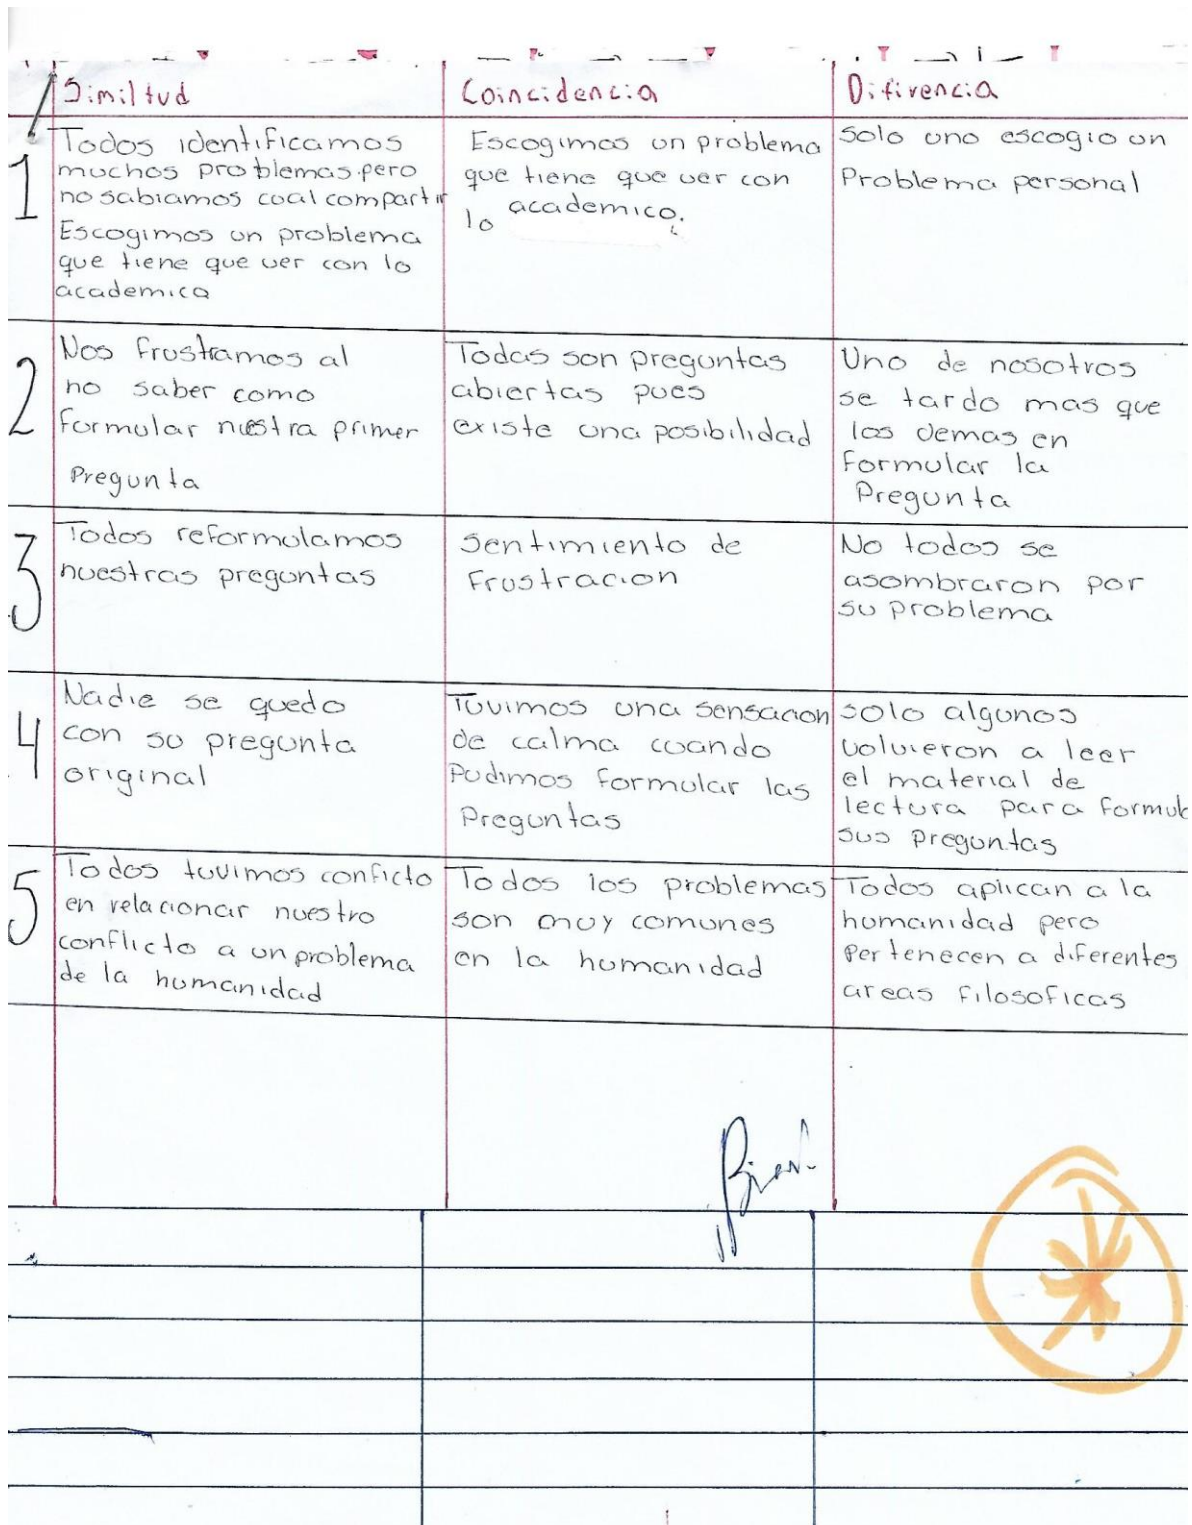 Similtud
Coincidencia
Difirencia
1
Todos identificamos
muchos problemas pero
no sabiamos cual compartir
Escogimos un problema
que tiene que ver con lo
academica
Escogimos un problema
que tiene que ver con
lo academico.
solo uno escogio un
Problema personal
2
Nos frustramos al
no saber como
formular nuestra primer
Pregunta
Todas son preguntas
abiertas pues
existe una posibilidad
Uno de nosotros
se tardo mas que
los demas en
formular la
Pregunta
3
Todos reformulamos
nuestras preguntas
Sentimiento de
Frustracion
No todos se
asombraron por
su problema
4
Nadie se quedo
con su pregunta
original
Tuvimos una sensacion
de calma cuando
Pudimos formular las
Preguntas
solo algunos
volvieron a leer
el material de
lectura para formul
sus preguntas
5
Todos tuvimos conficto
en relacionar nuestro
conflicto a un problema
de la humanidad
Todos los problemas
son muy comunes
en la humanidad
Todos aplican a la
humanidad pero
Pertenecen a diferentes
areas filosoficas